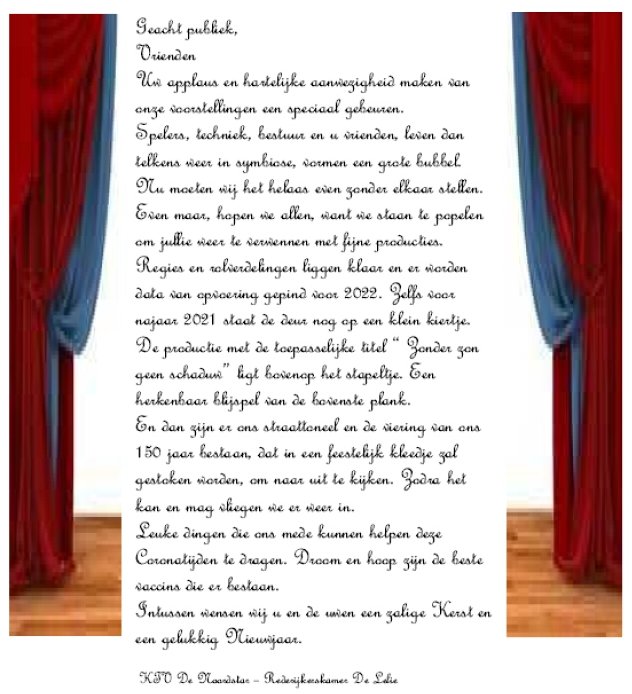 Geacht publiek,
Vrienden
Uw applaus en hartelijke aanwezigheid maken van
onze voorstellingen een speciaal gebeuren.
Spelers, techniek, bestuur en u vrienden, leven dan
telkens weer in symbiose, vormen een grote bubbel.
Nu moeten wij het helaas even zonder elkaar stellen.
Even maar, hopen we allen, want we staan te popelen
om jullie weer te verwennen met fijne producties.
Regies en rolverdelingen liggen klaar en er worden
data van opvoering gepind voor 2022. Zelfs voor
najaar 2021 staat de deur nog op een klein kiertje.
De productie met de toepasselijke titel “ Zonder zon
geen schaduw” ligt bovenop het stapeltje. Een
herkenbaar blijspel van de bovenste plank.
En dan zijn er ons straattoneel en de viering van ons
150 jaar bestaan, dat in een feestelijk kleedje zal
gestoken worden, om naar uit te kijken. Zodra het
kan en mag vliegen we er weer in.
Leuke dingen die ons mede kunnen helpen deze
Coronatijden te dragen. Droom en hoop zijn de beste
vaccins die er bestaan.
Intussen wensen wij u en de uwen een zalige Kerst en
een gelukkig Nieuwjaar.
KTO De Noordstar – Rederijkerskamer De Lelie